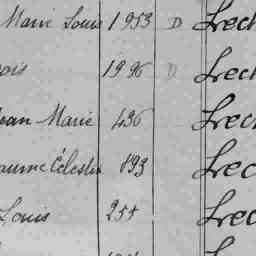 Marie Louis 1953 D Lech
ois 1996 D Lech
ean Marie 436 Lec
aume Célestin 893 Lec
Louis 255 Lec